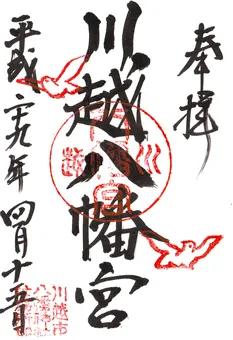 奉拝
川越八幡宮
平成二十九年四月十五日
川越市